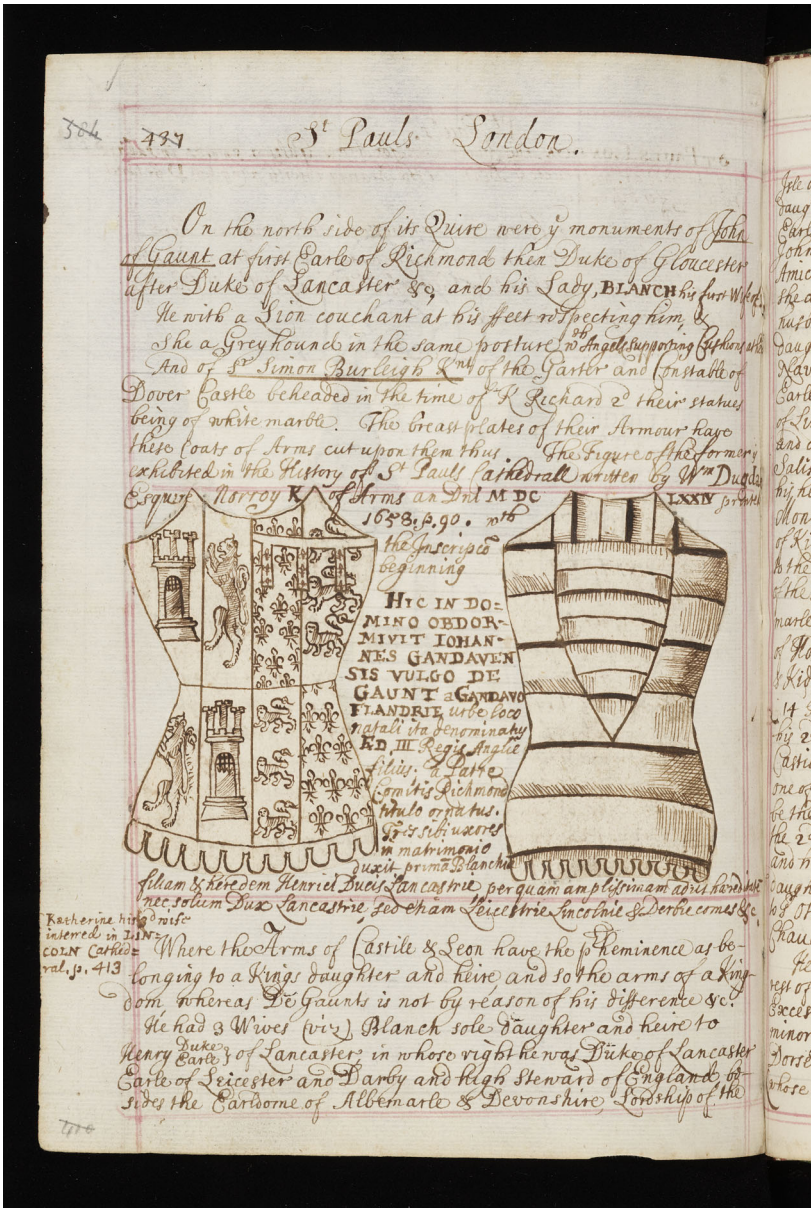 504
437
St Pauls. London.
On the north side of its Quire were ye monuments of John
of Gaunt at first Earle of Richmond then Duke of Gloucester
after Duke of Lancaster &c, and his Lady, BLANCH his first Wife
He with a Lion couchant at his ffeet respecting him, &
she a Greyhound in the same posture wth Angels supporting Cushions at
And of Sr Simon Burleigh Knt of the Garter and Constable of
Dover Castle beheaded in the time of K Richard 2d their statues
being of white marble. The breast plates of their Armour have
these Coats of Arms cut upon them thus The Figure of the former is
exhibited in the History of St Pauls Cathedrall written by Wm Dugd
Esquire Norroy K. of Arms an Dni MDC LXXIV printed
1658. p. 90. wth
the Inscripcō
beginning
HIC IN DO=
MINO OBDOR-
MIVIT IOHAN-
NES GANDAVEN
SIS VULGO DE
GAUNT a GANDAVO
FLANDRIE urbe loco
natali ita denominatus
ED, III. Regis Anglie
filius. a Patre
Comitis Richmond
titulo ornatus.
Tres sibi uxores
in matrimonio
duxit primā Blanchiā
filiam & heredem Henrici Ducis Lancastrie per quam amplissimam adijt
nec solum Dux Lancastrie, sed etiam Leicestrie Lincolnie & Derbie comes &c.
Katherine his 3d wife
interred in LIN-
COLN Cathed=
ral. p. 413
Where the Arms of Castile & Leon have the pheminence as be-
longing to a Kings daughter and heire, and so the arms of a King-
dom whereas De Gaunts is not by reason of his difference &c.
He had 3 Wives (viz) Blanch sole daughter and heire to
Henry Duke Earle } of Lancaster, in whose right he was Duke of Lancaster
Earle of Leicester and Darby and high Steward of England, be-
sides the Earldome of Albemarle & Devonshire, Lordship of the